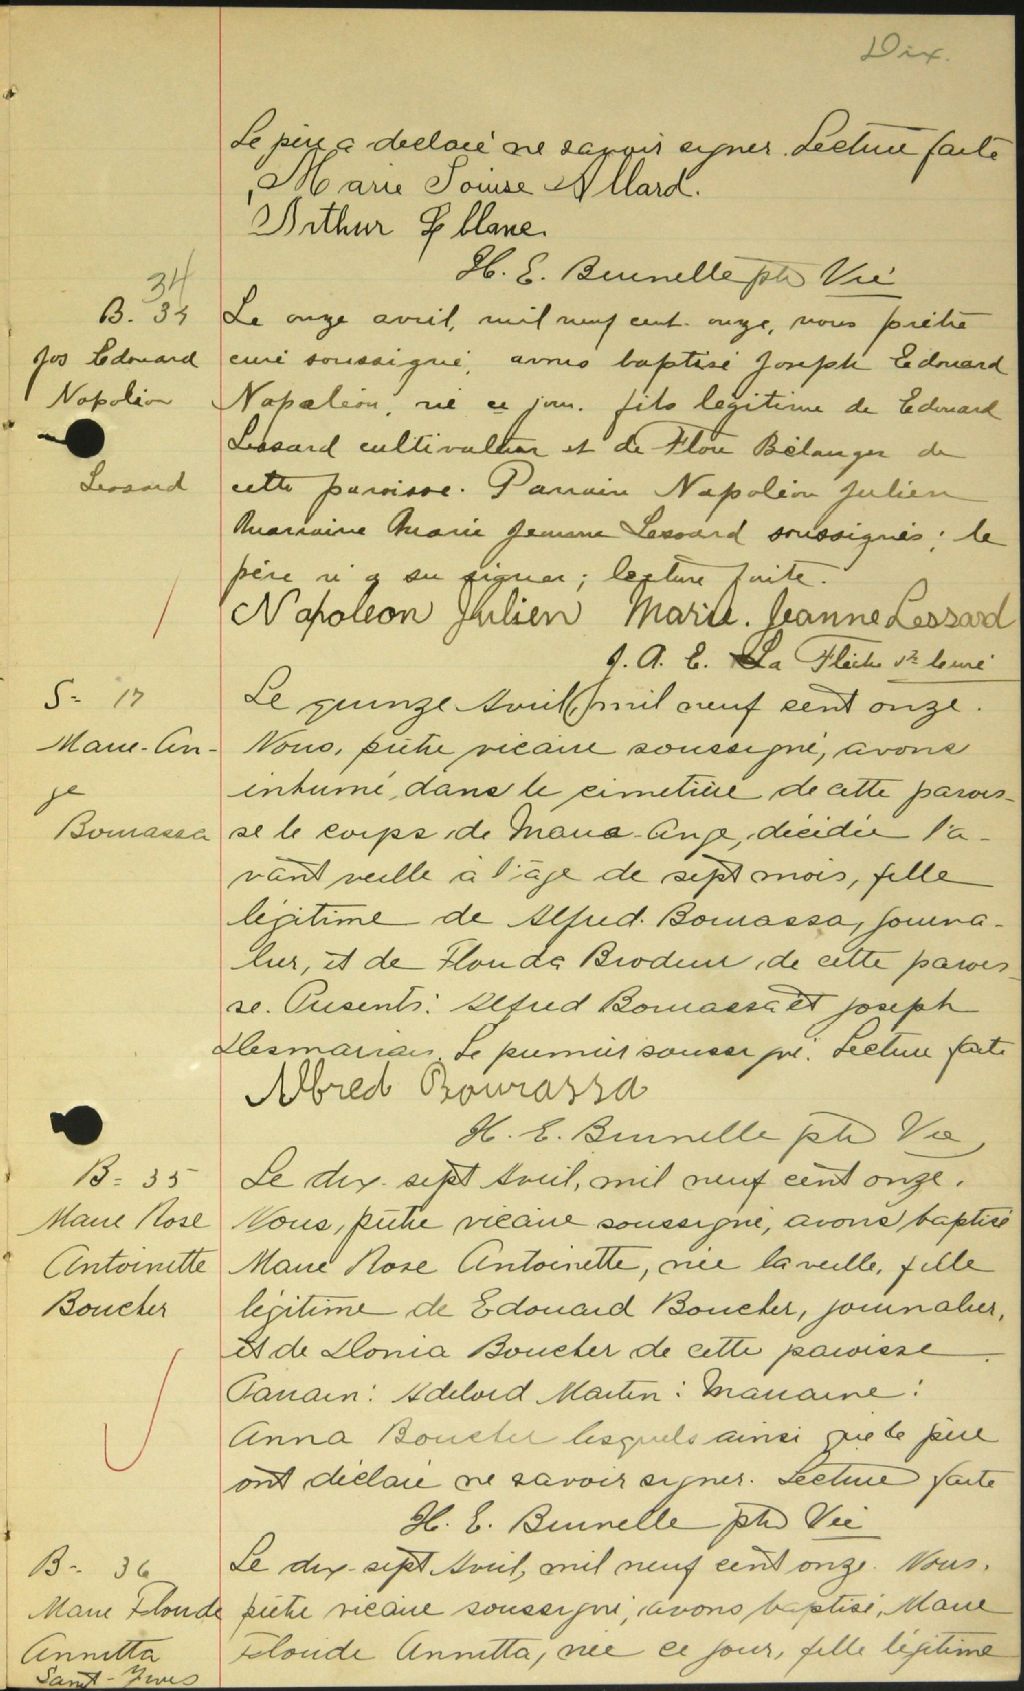 Dix.
Le père a declaré ne savoir signer. Lecture faite
Marie Louise Allard.
Arthur Leblanc.
H. E. Brunelle ptre Vic
34
B. 34
Jos Edouard
Napoléon
Lessard
Le onze avril, mil neuf cent onze, nous prêtre
curé soussigné, avons baptisé Joseph Edouard
Napoléon, né ce jour. fils legitime de Edouard
Lessard cultivateur et de Flore Bélanger de
cette paroisse. Parrain Napoléon Julien
Marraine Marie Jeanne Lessard soussignés; le
père n'a su signer; lecture faite.
Napoleon Julien Marie. Jeanne Lessard
J. A. E. La Flèche ptre curé
S= 17
Marie-An-
ge
Bourassa
Le quinze Avril, mil neuf cent onze.
Nous, prêtre vicaire soussigné, avons
inhumé, dans le cimetière de cette parois-
se le corps de Marie-Ange, décédée l'a-
vant veille à l'âge de sept mois, fille
légitime de Alfred Bourassa, journa-
lier, et de Florida Brodeur de cette parois-
se. Présents: Alfred Bourassa et Joseph
Desmarais. Le premier soussigné. Lecture faite
Alfred Bourassa
H. E. Brunelle ptre Vic
B= 35
Marie Rose
Antoinette
Boucher
Le dix-sept Avril, mil neuf cent onze.
Nous, prêtre vicaire soussigné, avons baptisé
Marie Rose Antoinette, née la veille, fille
légitime de Edouard Boucher, journalier,
et de Donia Boucher de cette paroisse.
Parrain: Adelord Martin: Marraine:
Anna Boucher lesquels ainsi que le père
ont déclaré ne savoir signer. Lecture faite
H. E. Brunelle ptre Vic
B= 36
Marie Floride
Annetta
Saint-Yves
Le dix-sept Avril, mil neuf cent onze. Nous,
prêtre vicaire soussigné, avons baptisé, Marie
Floride Annetta, née ce jour, fille légitime